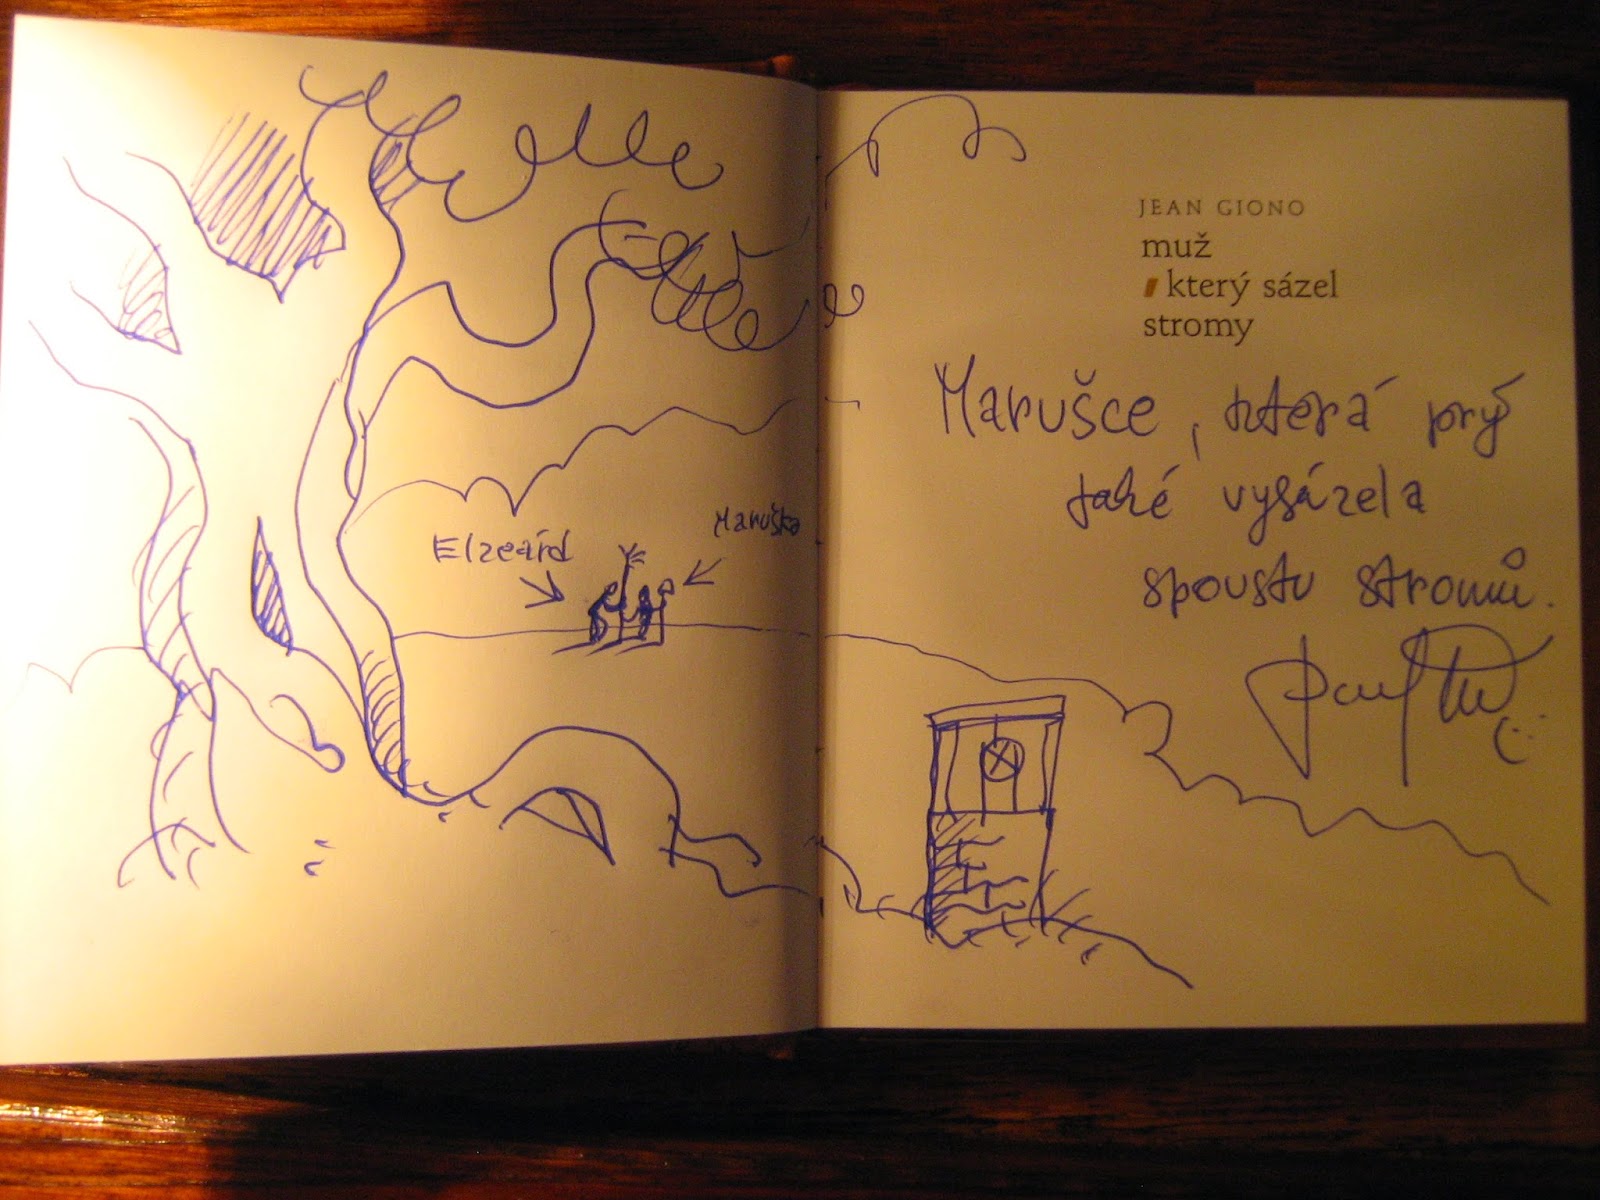 Elzeárd
Maruška
JEAN GIONO
muž
který sázel
stromy
Marušce, která prý
také vysázela
spoustu stromů.